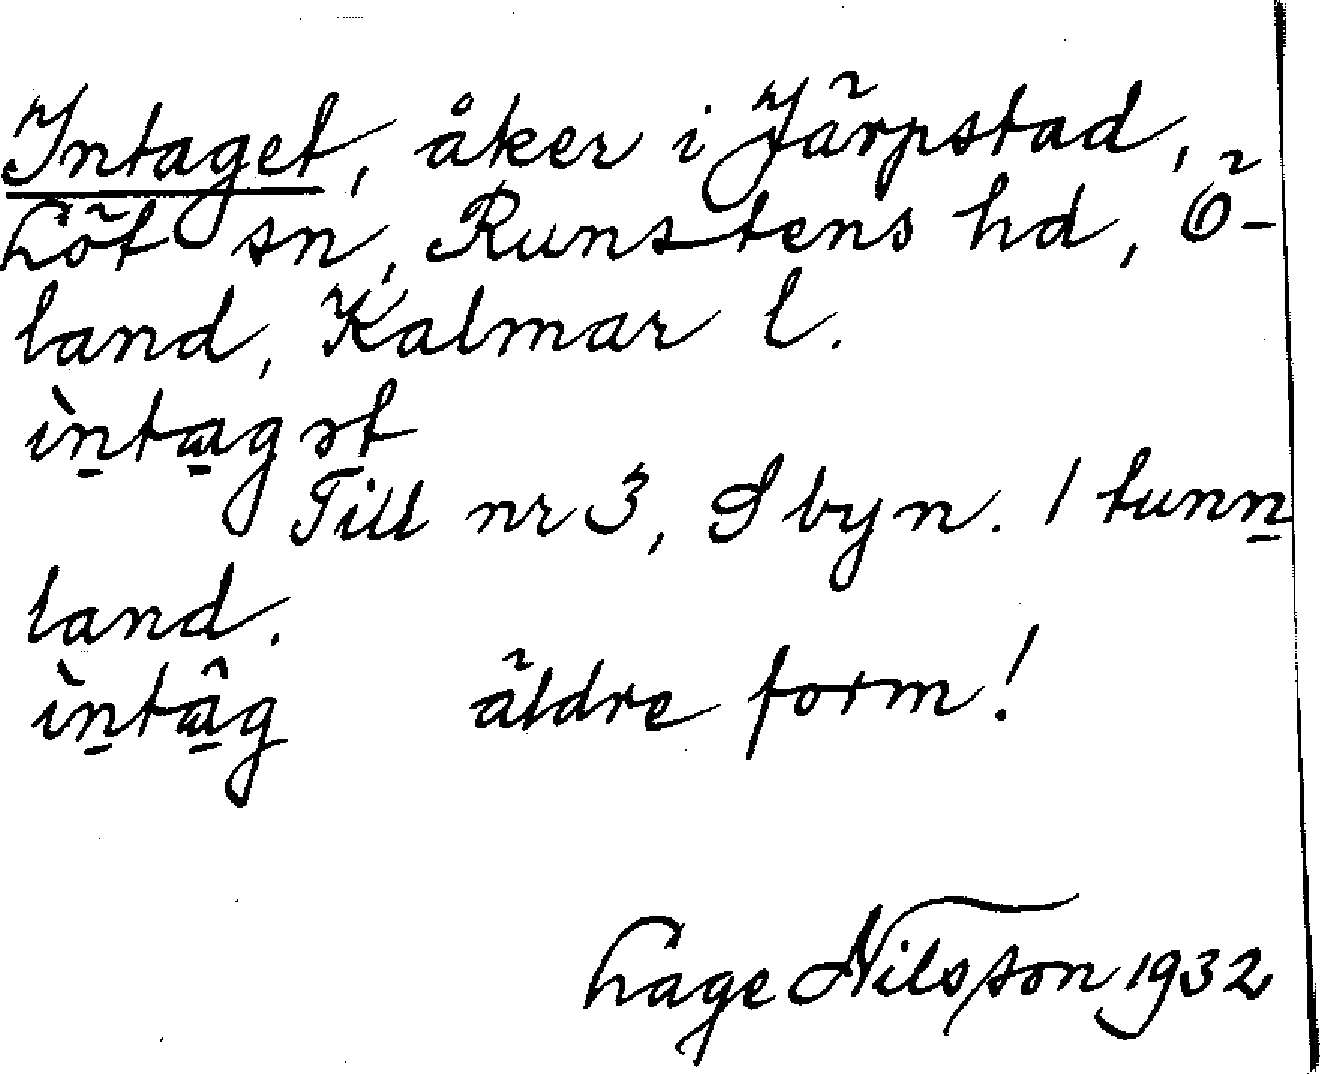 Intaget, åker i Järpstad,
Löt sn, Runstens hd, Ö-
land, Kalmar l.
ìn̲ta̲gət
Till nr 3, I byn. 1 tunn̲
land.
ìn̲tâ̲g äldre form!
Lage Nilsson 1932